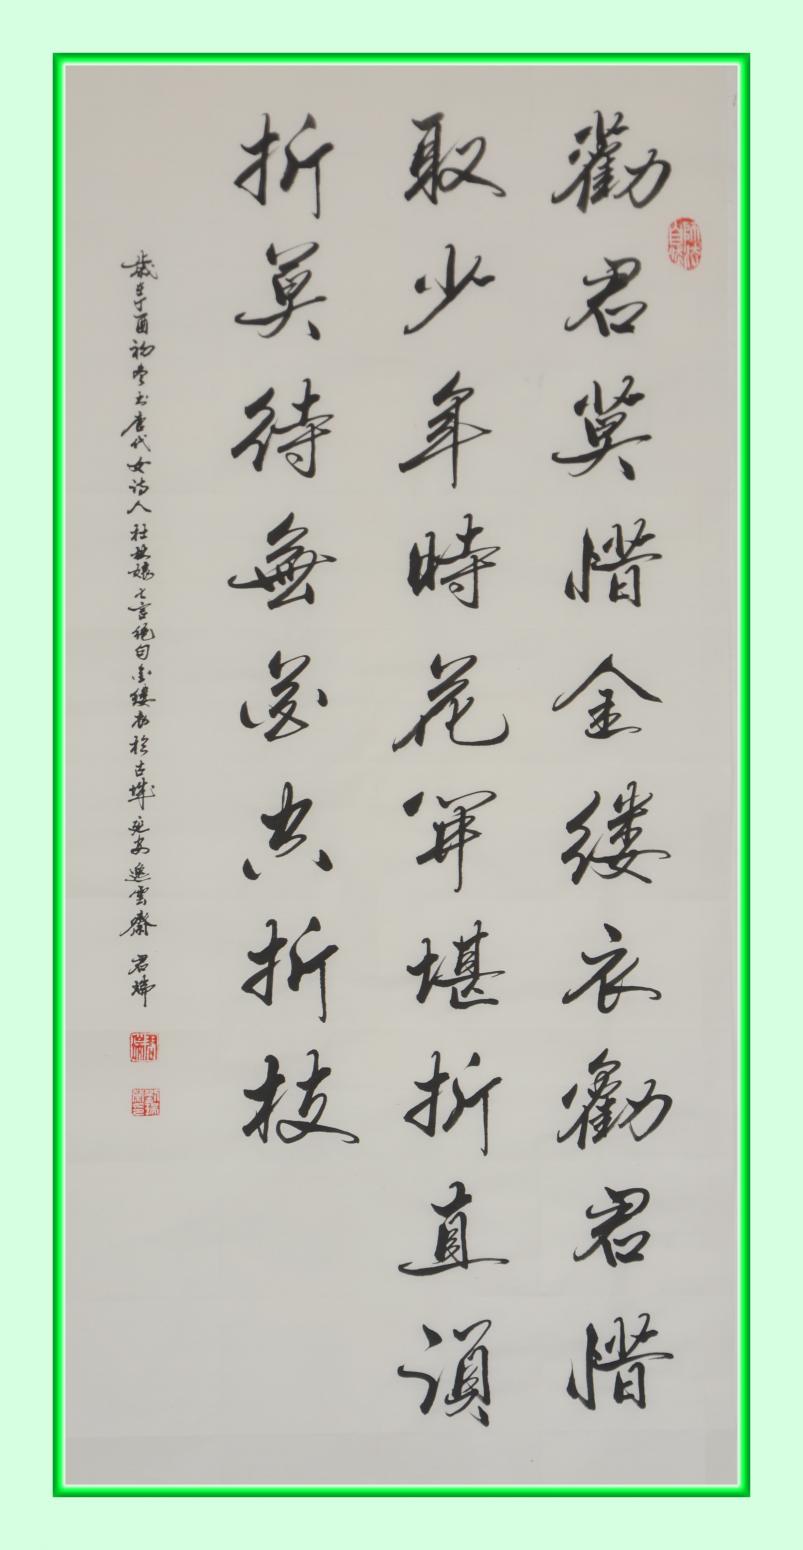 勸君莫惜金缕衣勸君惜
取少年時花開堪折直須
折莫待無花空折枝
歲在丁酉初冬书唐代女诗人杜秋娘七言绝句金缕衣於古城宛安逸雲齋 君瑞